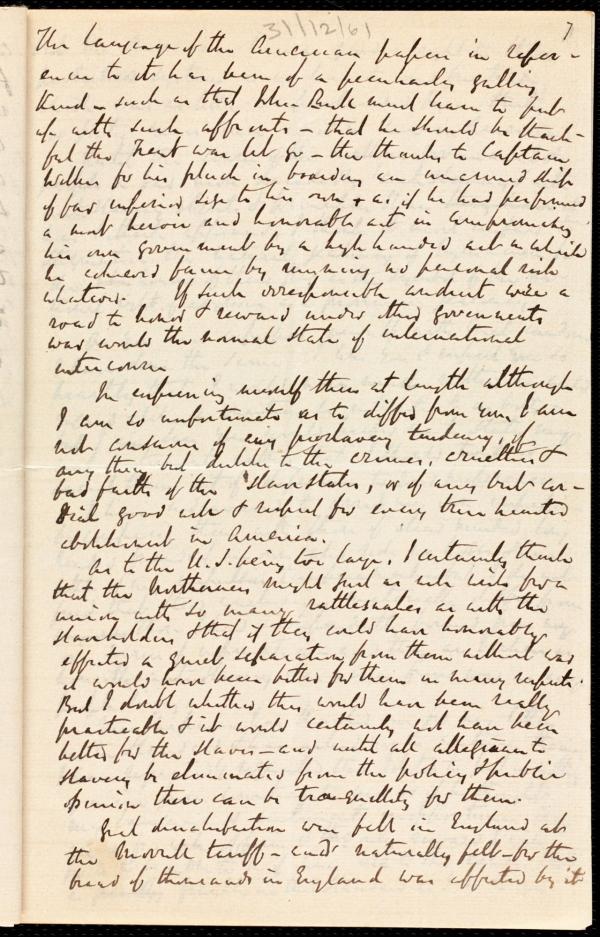 31/12/61
7
The language of the American papers in refer-
ence to it has been of a peculiarly galling
kind – such as that John Bull must learn to put
up with such affronts – that he should be thank-
ful the Trent was let go – the thanks to Captain
Wilkes for his pluck in boarding an unarmed ship
of far inferior size to his own & as if he had performed
a most heroic and honorable act in compromising
his own government by a high handed act in which
he achieved fame by running no personal risk
whatever. If such irresponsible conduct were a
road to honor & reward under other governments
war would the normal state of international
intercourse
In expressing myself thus at length although
I am so unfortunate as to differ from you, I am
not conscious of any proslavery tendency, of
any thing but dislike to the crimes, cruelties &
bad faith of the Slave States, or of any but cor-
dial good will & respect for every true hearted
abolitionist in America.
As to the U.S. being too large, I certainly think
that the Northerners might just as well wish for a
union with so many rattlesnakes as with the
slaveholders & that if they could have honorably
effected a quiet separation from them without war
it would have been better for them in many respects.
But I doubt whether this would have been really
practicable & it would certainly not have been
better for the slaves – and until all allegiance to
slavery be eliminated from the policy & public
opinion there can be tranquillity for them.
Great dissatisfaction was felt in England at
the Morrill tariff – and naturally felt – for the
bread of thousands in England was affected by it